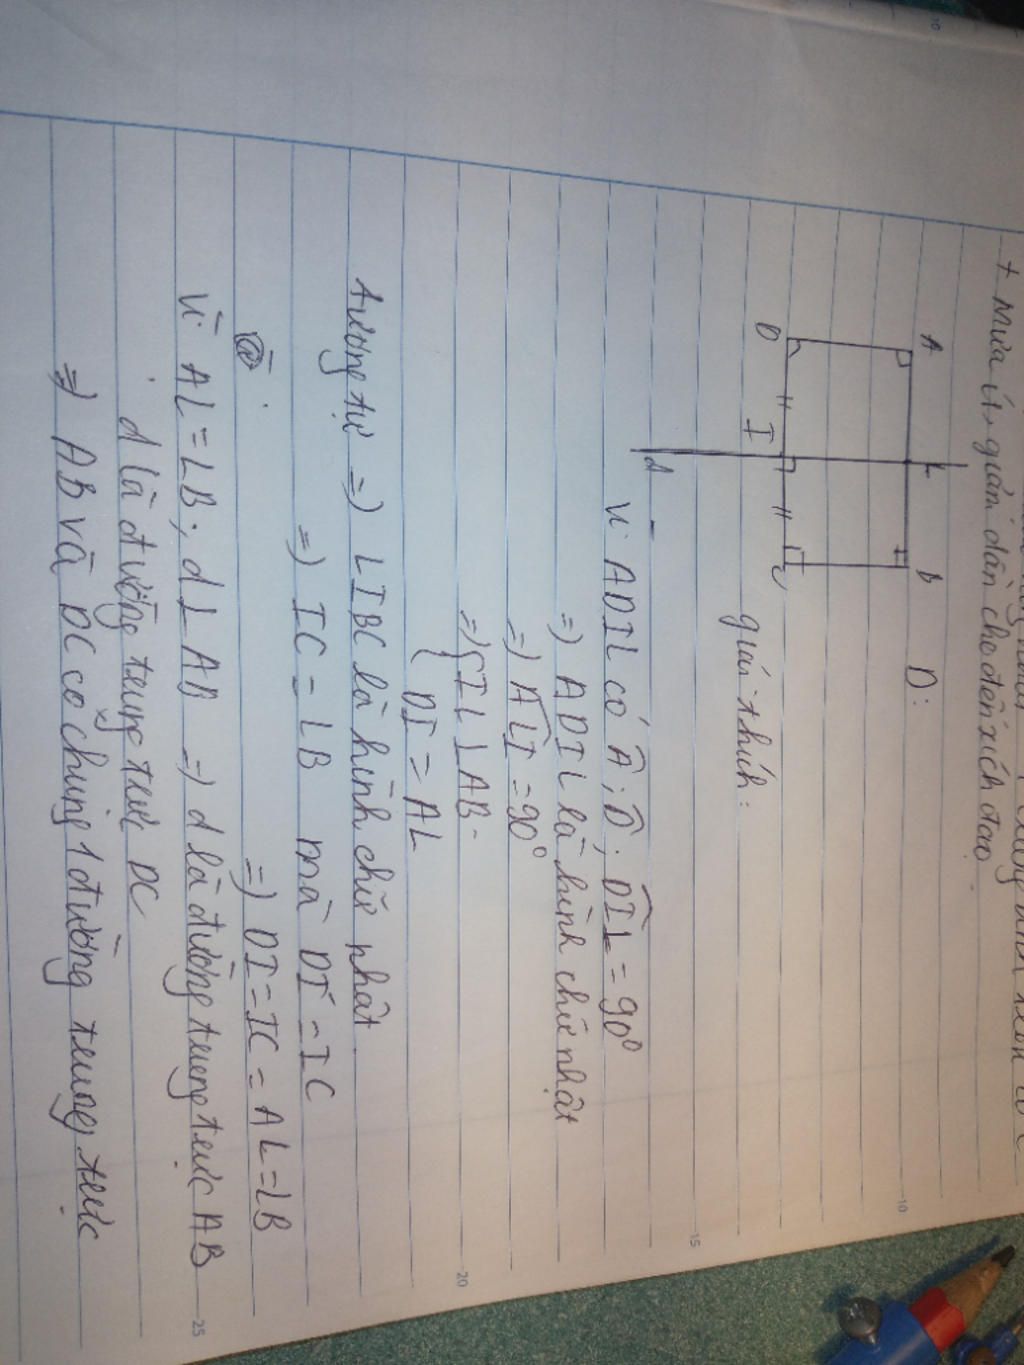 + Mưa ít, giảm dần cho đến xích đạo.
A L B D:
D I C
d
giải thích:
Vì ADIL có Â; D̂; DIL̂ = 90⁰
=) ADIL là hình chữ nhật
=) ALÎ = 90⁰
=) { IL ⊥ AB
DI = AL
tương tự =) LIBC là hình chữ nhật.
=) IC = LB mà DI = IC
=) DI = IC = AL = LB
Vì AL = LB; d ⊥ AB =) d là đường trung trực AB
d là đường trung trực DC
=) AB và DC có chung 1 đường trung trực
10
15
20
25